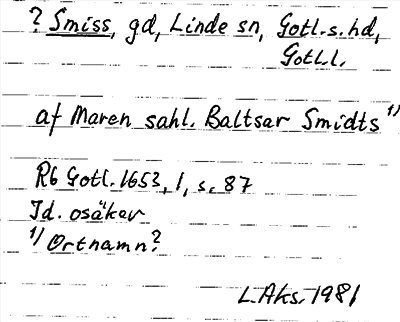 ? Smiss, gd, Linde sn, Gotl. s. hd,
Gotl. l.
af Maren sahl. Baltsar Smidts 1)
Rb Gotl. 1653, 1, s. 87
Id. osäker
1) Ortnamn?
L Aks. 1981